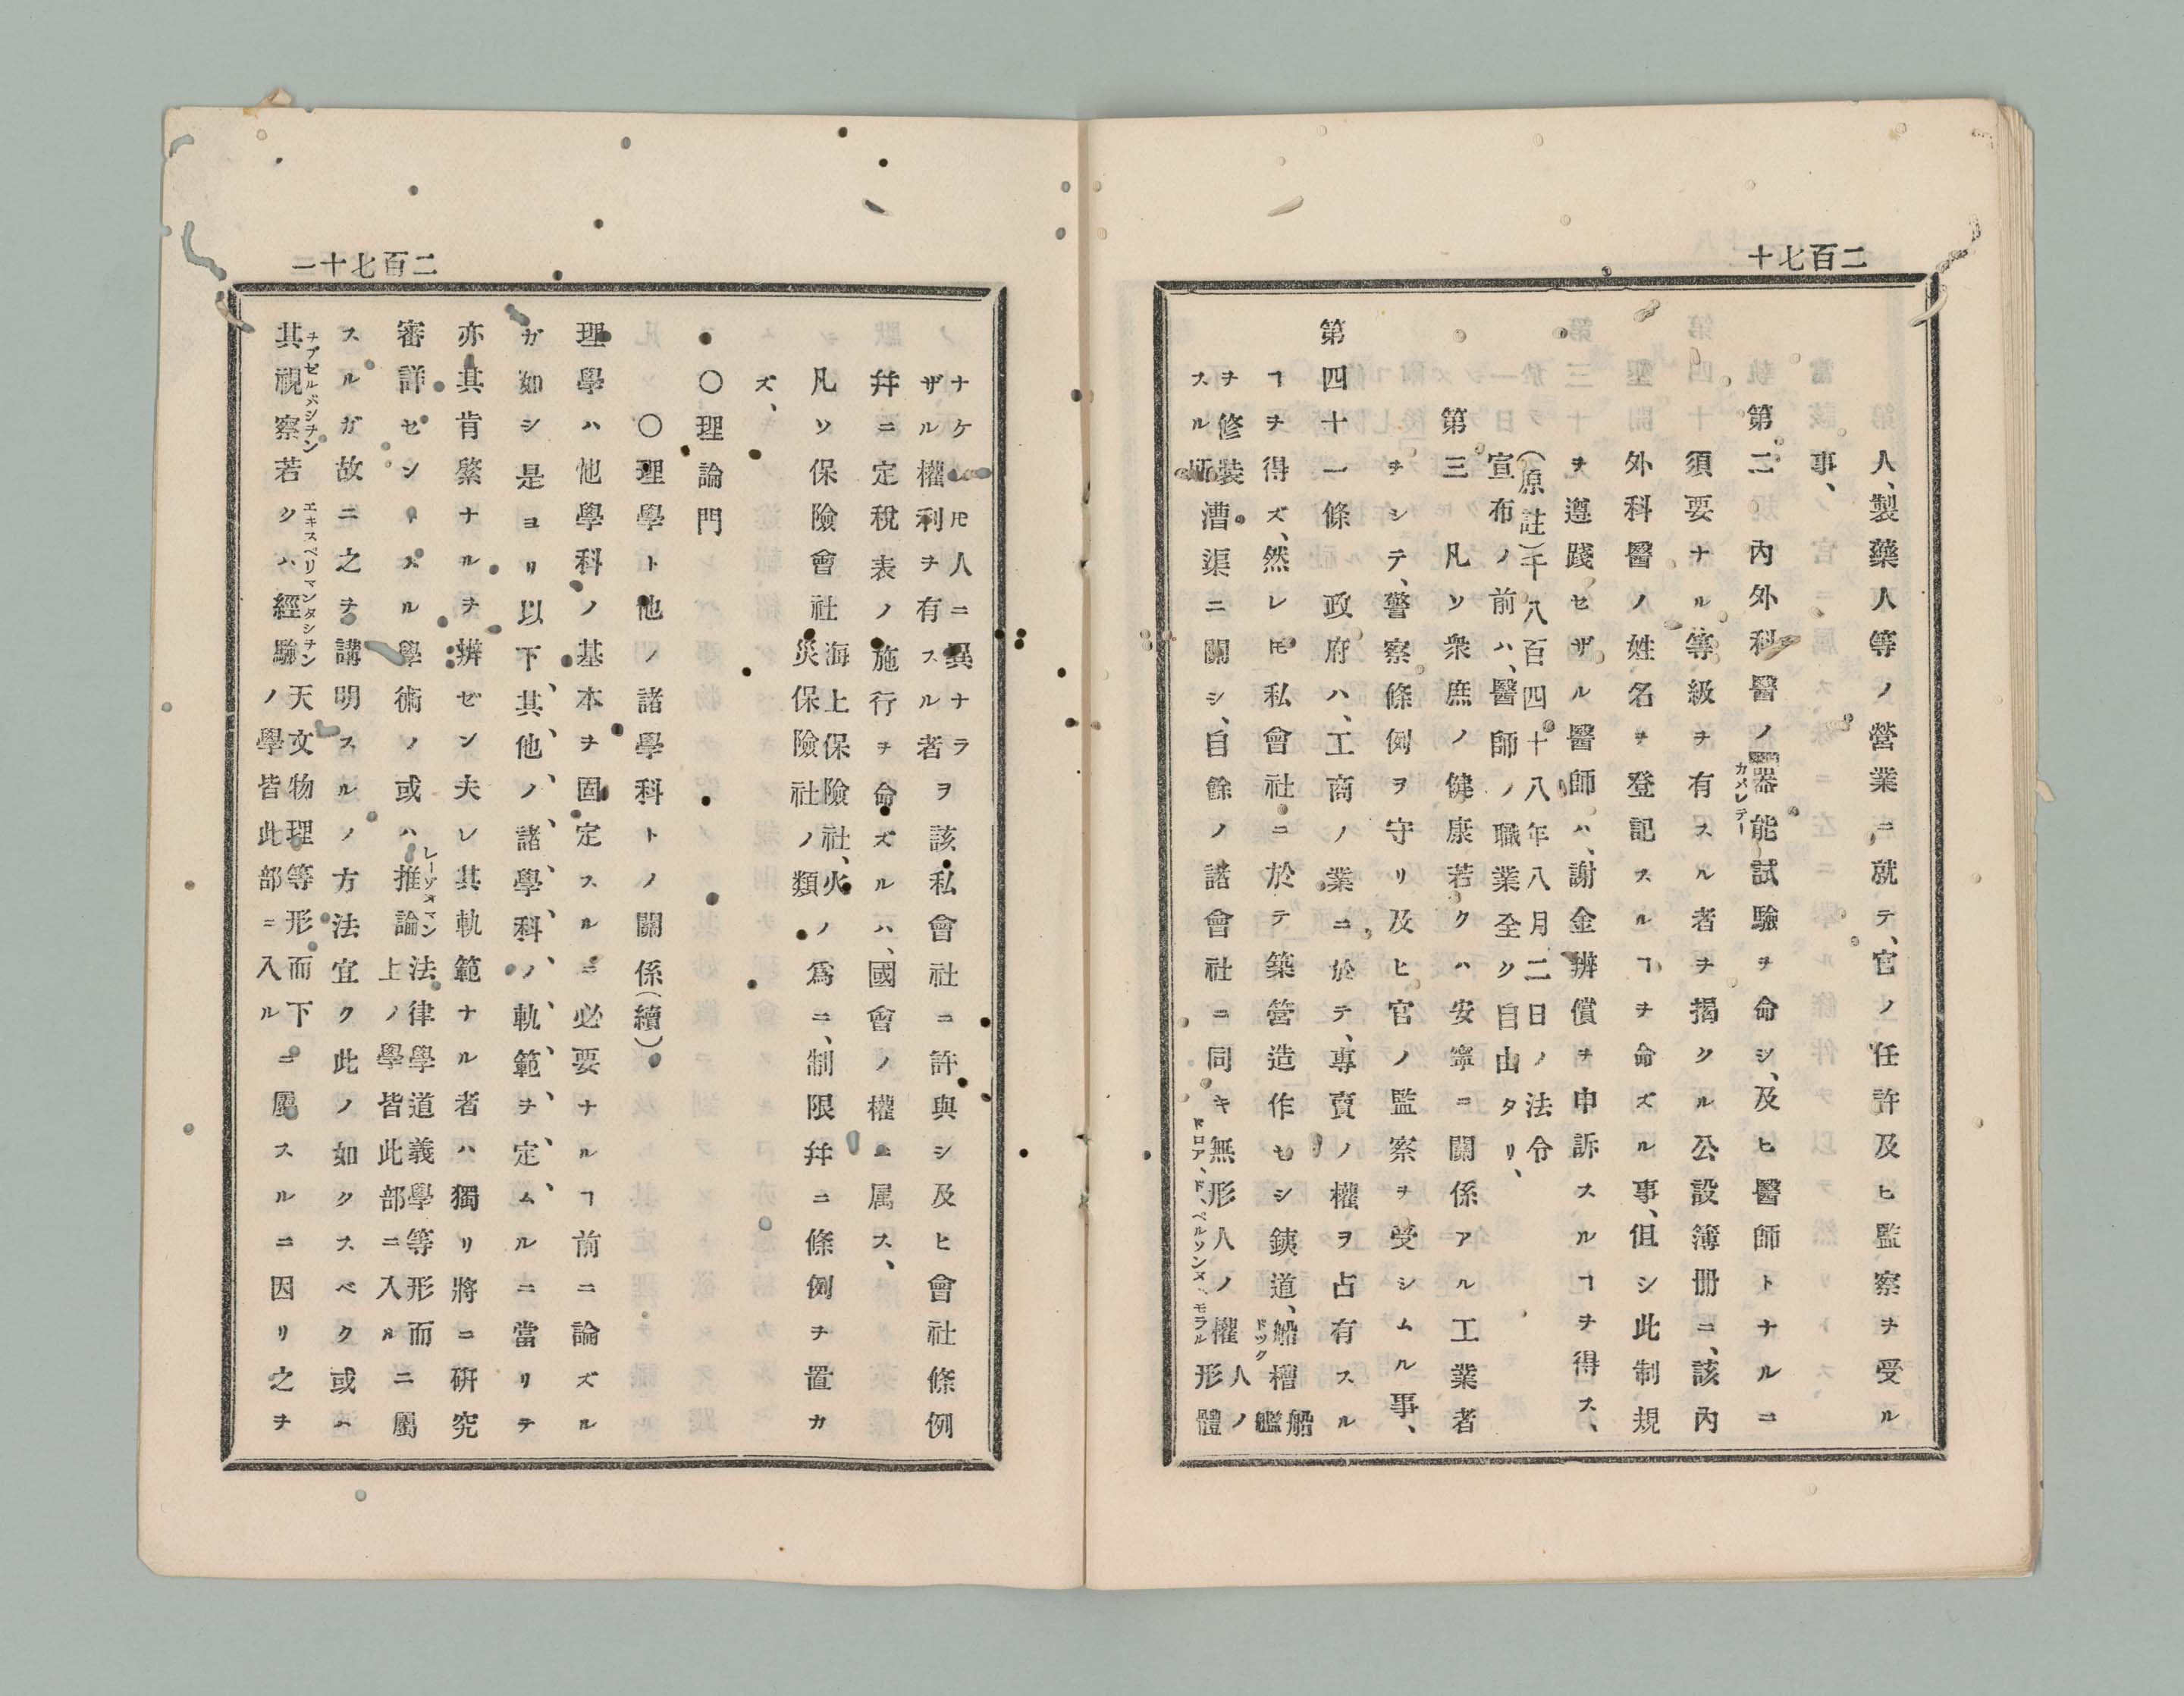 二百七十
人、製藥人等ノ營業ニ就テ、官ノ任許及ヒ監察ヲ受ル
事、
第二 內外科醫ノ器能試驗ヲ命シ、及ヒ醫師トナルニ
カパレテー
須要ナル等級ヲ有スル者ヲ揭クル公設簿册ニ、該內
外科醫ノ姓名ヲ登記スルヿヲ命ズル事、但シ此制規
ヲ遵踐セザル醫師ハ、謝金辨償ヲ申訴スルヿヲ得ス、
(原註)千八百四十八年八月二日ノ法令
宣布ノ前ハ、醫師ノ職業全ク自由タリ、
第三 凡ソ衆庶ノ健康若クハ安寧ニ關係アル工業者
ヲシテ、警察條例ヲ守リ及ヒ官ノ監察ヲ受シムル事、
第四十一條 政府ハ、工商ノ業ニ於テ、專賣ノ權ヲ占有スル
ヿヲ得ズ、然レ𪜈私會社ニ於テ築營造作セシ銕道、船檣船艦
ドック
ヲ修裝
スル所漕渠ニ關シ、自餘ノ諸會社ニ同キ無形人ノ權人ノ形體
ドロア、ド、ペルソンヌ、モラル
二百七十一
ナケレ𪜈人ニ異ナラ
ザル權利ヲ有スル者ヲ該私會社ニ許與シ及ヒ會社條例
幷ニ定稅表ノ施行ヲ命ズルハ、國會ノ權ニ属ス、
凡ソ保險會社海上保險社、火災保險社ノ類ノ爲ニ、制限幷ニ條例ヲ置カ
ズ、
〇理論門
〇理學ト他ノ諸學科トノ關係(續)
理學ハ他學科ノ基本ヲ固定スルニ必要ナルヿ前ニ論ズル
ガ如シ是ヨリ以下其、他、ノ、諸、學、科、ノ、軌、範、ヲ、定、ムルニ當リテ
亦其肯綮ナルヲ辨ゼン夫レ其軌範ナル者ハ獨リ將ニ硏究
審詳セントスル學術ノ或ハ推論法律學道義學等形而上ノ學皆此部ニ入ルニ屬
レーゾヌマン
スルガ故ニ之ヲ講明スルノ方法宜ク此ノ如クスベク或ハ
其視察若クハ經驗天文物理等形而下ノ學皆此部ニ入ルニ屬スルニ因リ之ヲ
ヲブセルバシヲン
エキスペリマンタシヲン